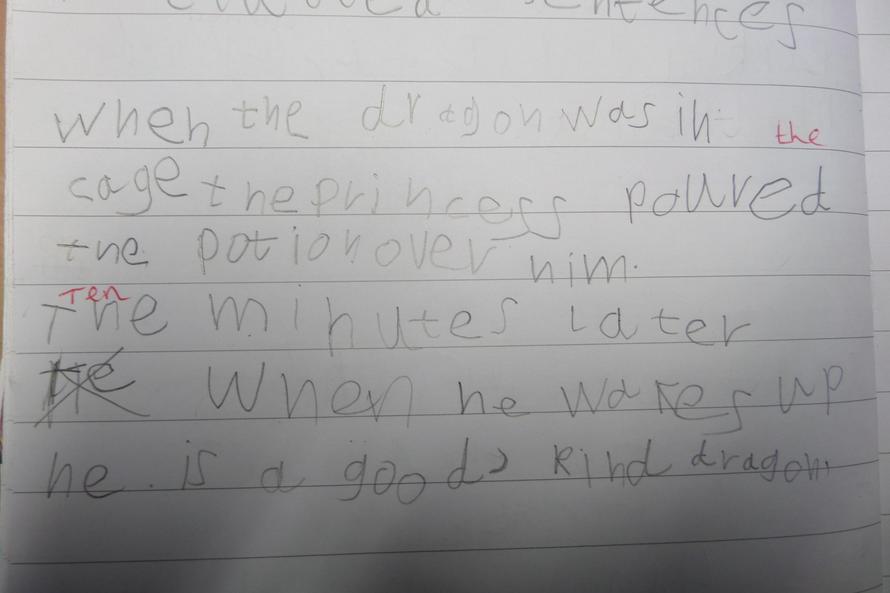 sentences
When the dragon was in the
cage the princess poured
the potion over him.
Ten
The minutes later
When he wakes up
he is a good, kind dragon.